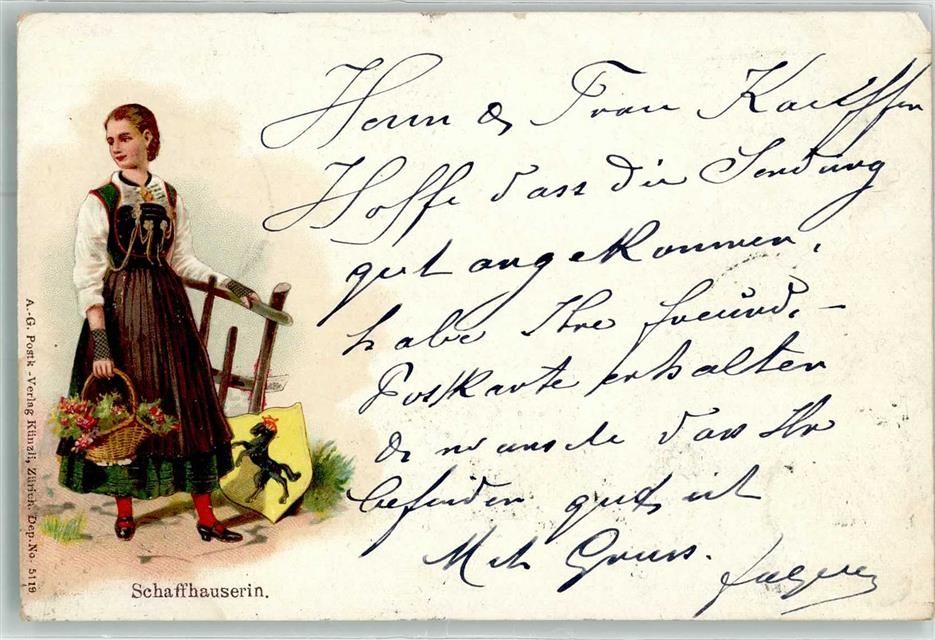 Herrn & Frau
Hoffe dass die Sendung
gut angekommen,
habe Ihre freundl.
Postkarte erhalten
& wünsche dass Ihr
befinden gut ist
Mit Gruss.
Schaffhauserin.
A.-G. Postk.-Verlag Künzli, Zürich. Dep. No. 5119